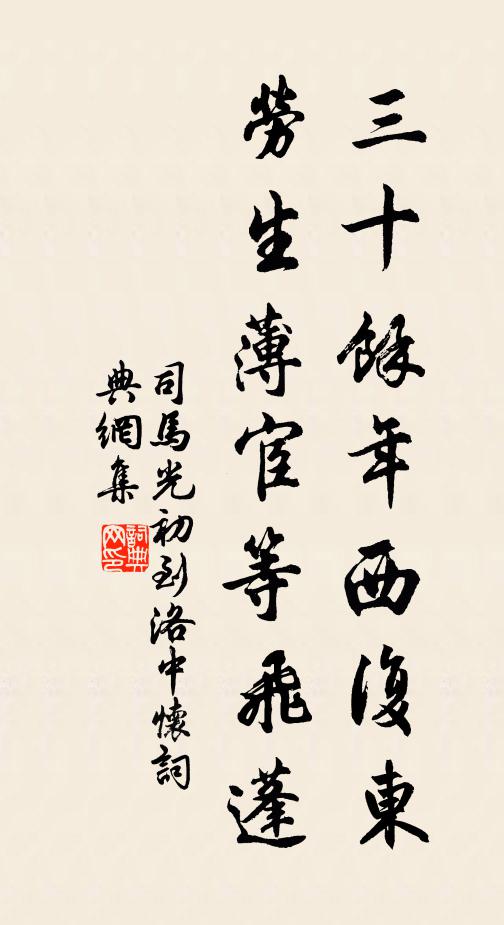 三十餘年西復東
勞生薄宦等飛蓬
司馬光初到洛中懷詞
典網集
詞典
网印